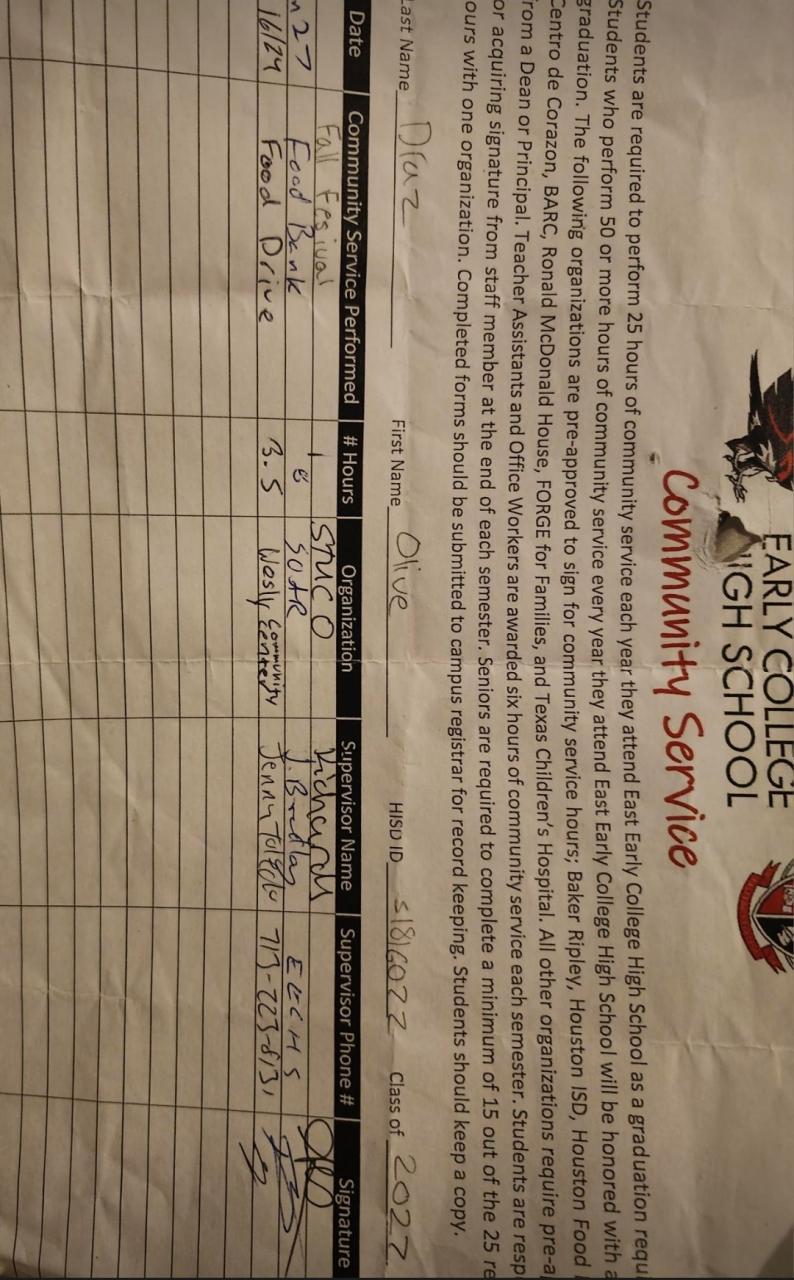 EARLY COLLEGE
HIGH SCHOOL
Community Service
Students are required to perform 25 hours of community service each year they attend East Early College High School as a graduation requ
Students who perform 50 or more hours of community service every year they attend East Early College High School will be honored with a
graduation. The following organizations are pre-approved to sign for community service hours; Baker Ripley, Houston ISD, Houston Food
Centro de Corazon, BARC, Ronald McDonald House, FORGE for Families, and Texas Children's Hospital. All other organizations require pre-a
rom a Dean or Principal. Teacher Assistants and Office Workers are awarded six hours of community service each semester. Students are resp
or acquiring signature from staff member at the end of each semester. Seniors are required to complete a minimum of 15 out of the 25 re
ours with one organization. Completed forms should be submitted to campus registrar for record keeping. Students should keep a copy.
Last Name Diaz First Name Olive HISD ID S1816022 Class of 2022
Date Community Service Performed # Hours Organization Supervisor Name Supervisor Phone # Signature
Fall Fesival 1 STUCO Richards
n 27 Food Bank 8 SOAR J. Bradley EECHS
16/24 Food Drive 3.5 Wesly Community Center Jenny Toledo 713-223-8131